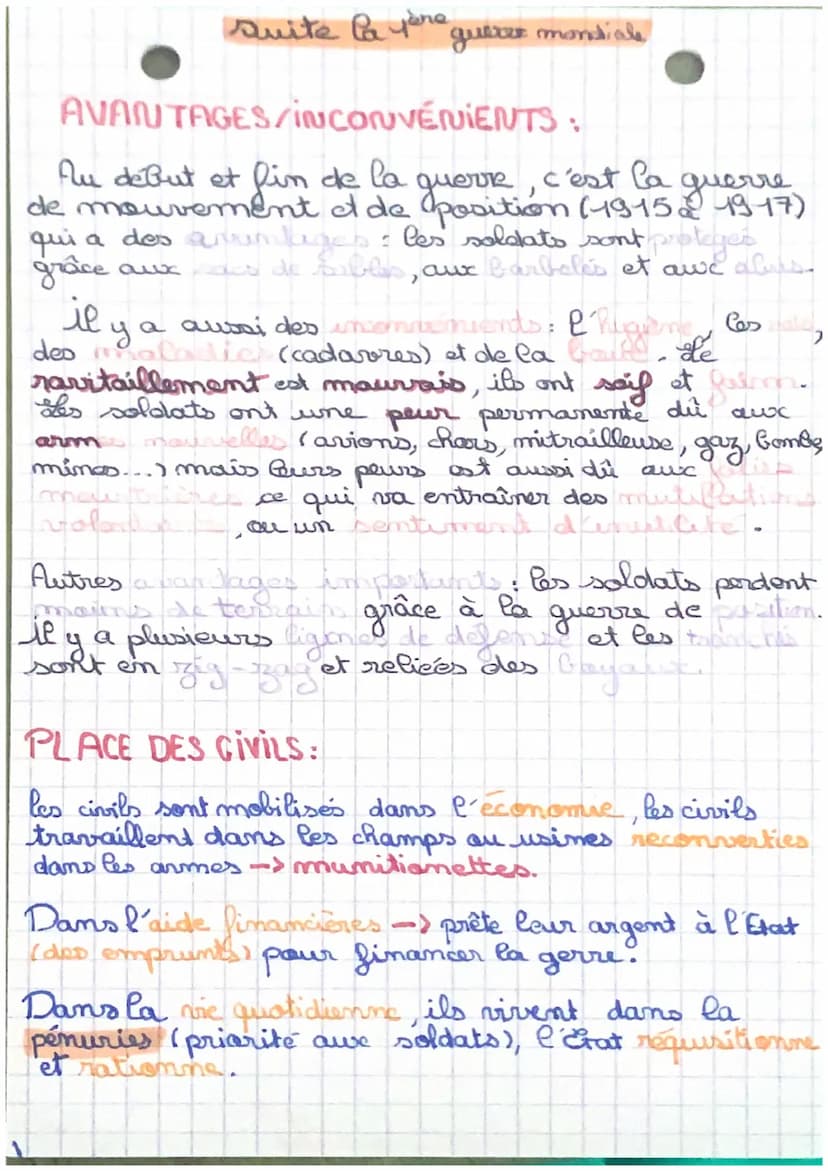 Suite la 1ère guerre mondiale
AVANTAGES/iNCONVÉNiENTS :
Au début et fin de la guerre, c'est la guerre
de mouvement et de position (1915 à 1917)
qui a des avantages : les soldats sont protégés
grâce aux sacs de sables, aux barbelés et aux abris.
il y a aussi des inconvénients : l'hygiène, les
des maladies (cadavres) et de la boue. Le
ravitaillement est mauvais, ils ont soif et faim.
Les soldats ont une peur permanente dû aux
armes nouvelles (avions, chars, mitrailleuse, gaz, bombe,
mines...) mais leurs peurs est aussi dû aux folies
meurtrières ce qui va entraîner des mutilations
volontaires, ou un sentiment d'inutilité.
Autres avantages importants : les soldats perdent
moins de terrain grâce à la guerre de position.
il y a plusieurs lignes de défense et les tranchés
sont en zig-zag et reliées des boyaux.
PLACE DES CiViLS :
les civils sont mobilisés dans l'économie, les civils
travaillent dans les champs ou usines reconverties
dans les armes -> munitionettes.
Dans l'aide financières -> prête leur argent à l'Etat
(des emprunts) pour financer la gerre.
Dans la vie quotidienne, ils vivent dans la
pénuries (priorité aux soldats), l'État réquisitionne
et rationne.